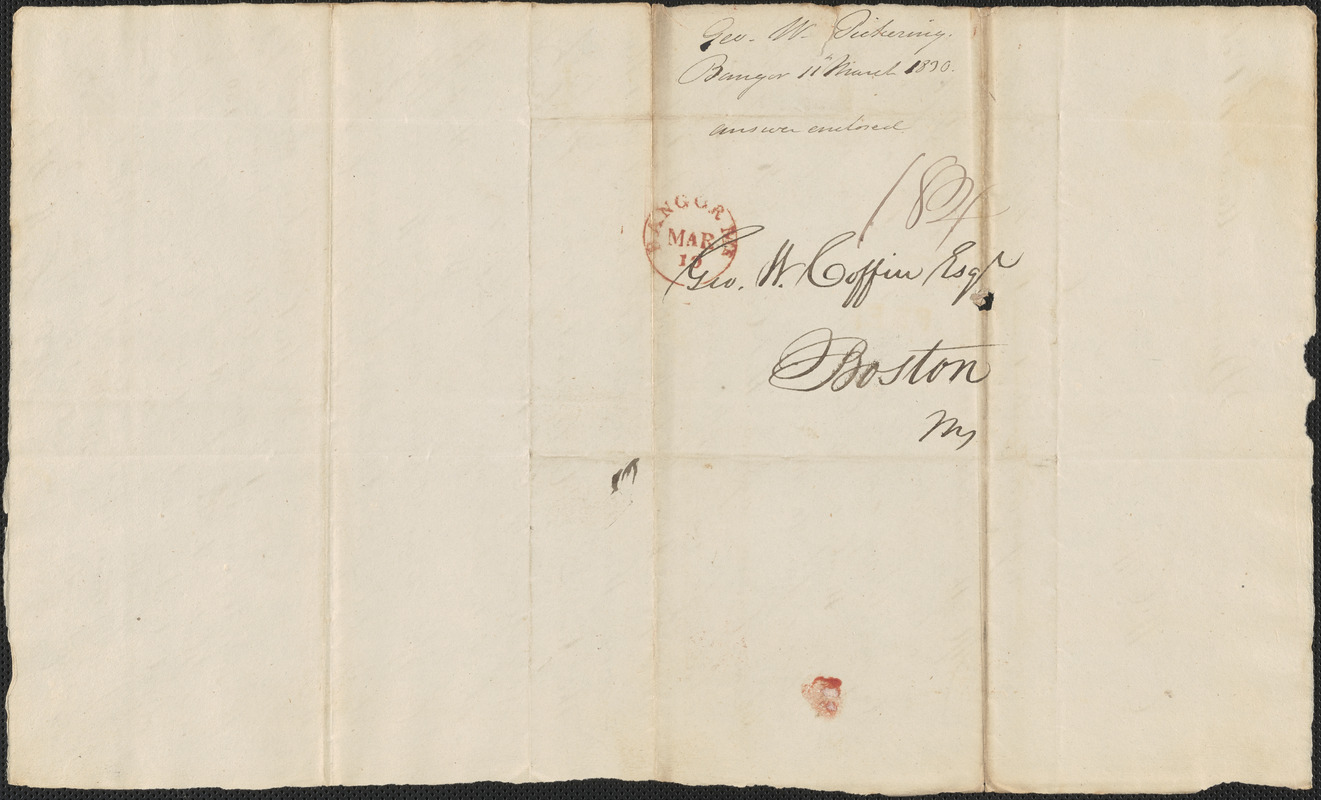 Geo. W. Pickering.
Bangor 11th March 1830.
answer enclosed
18¾
BANGOR ME
MAR
13
Geo. W. Coffin Esqr
Boston
Ms